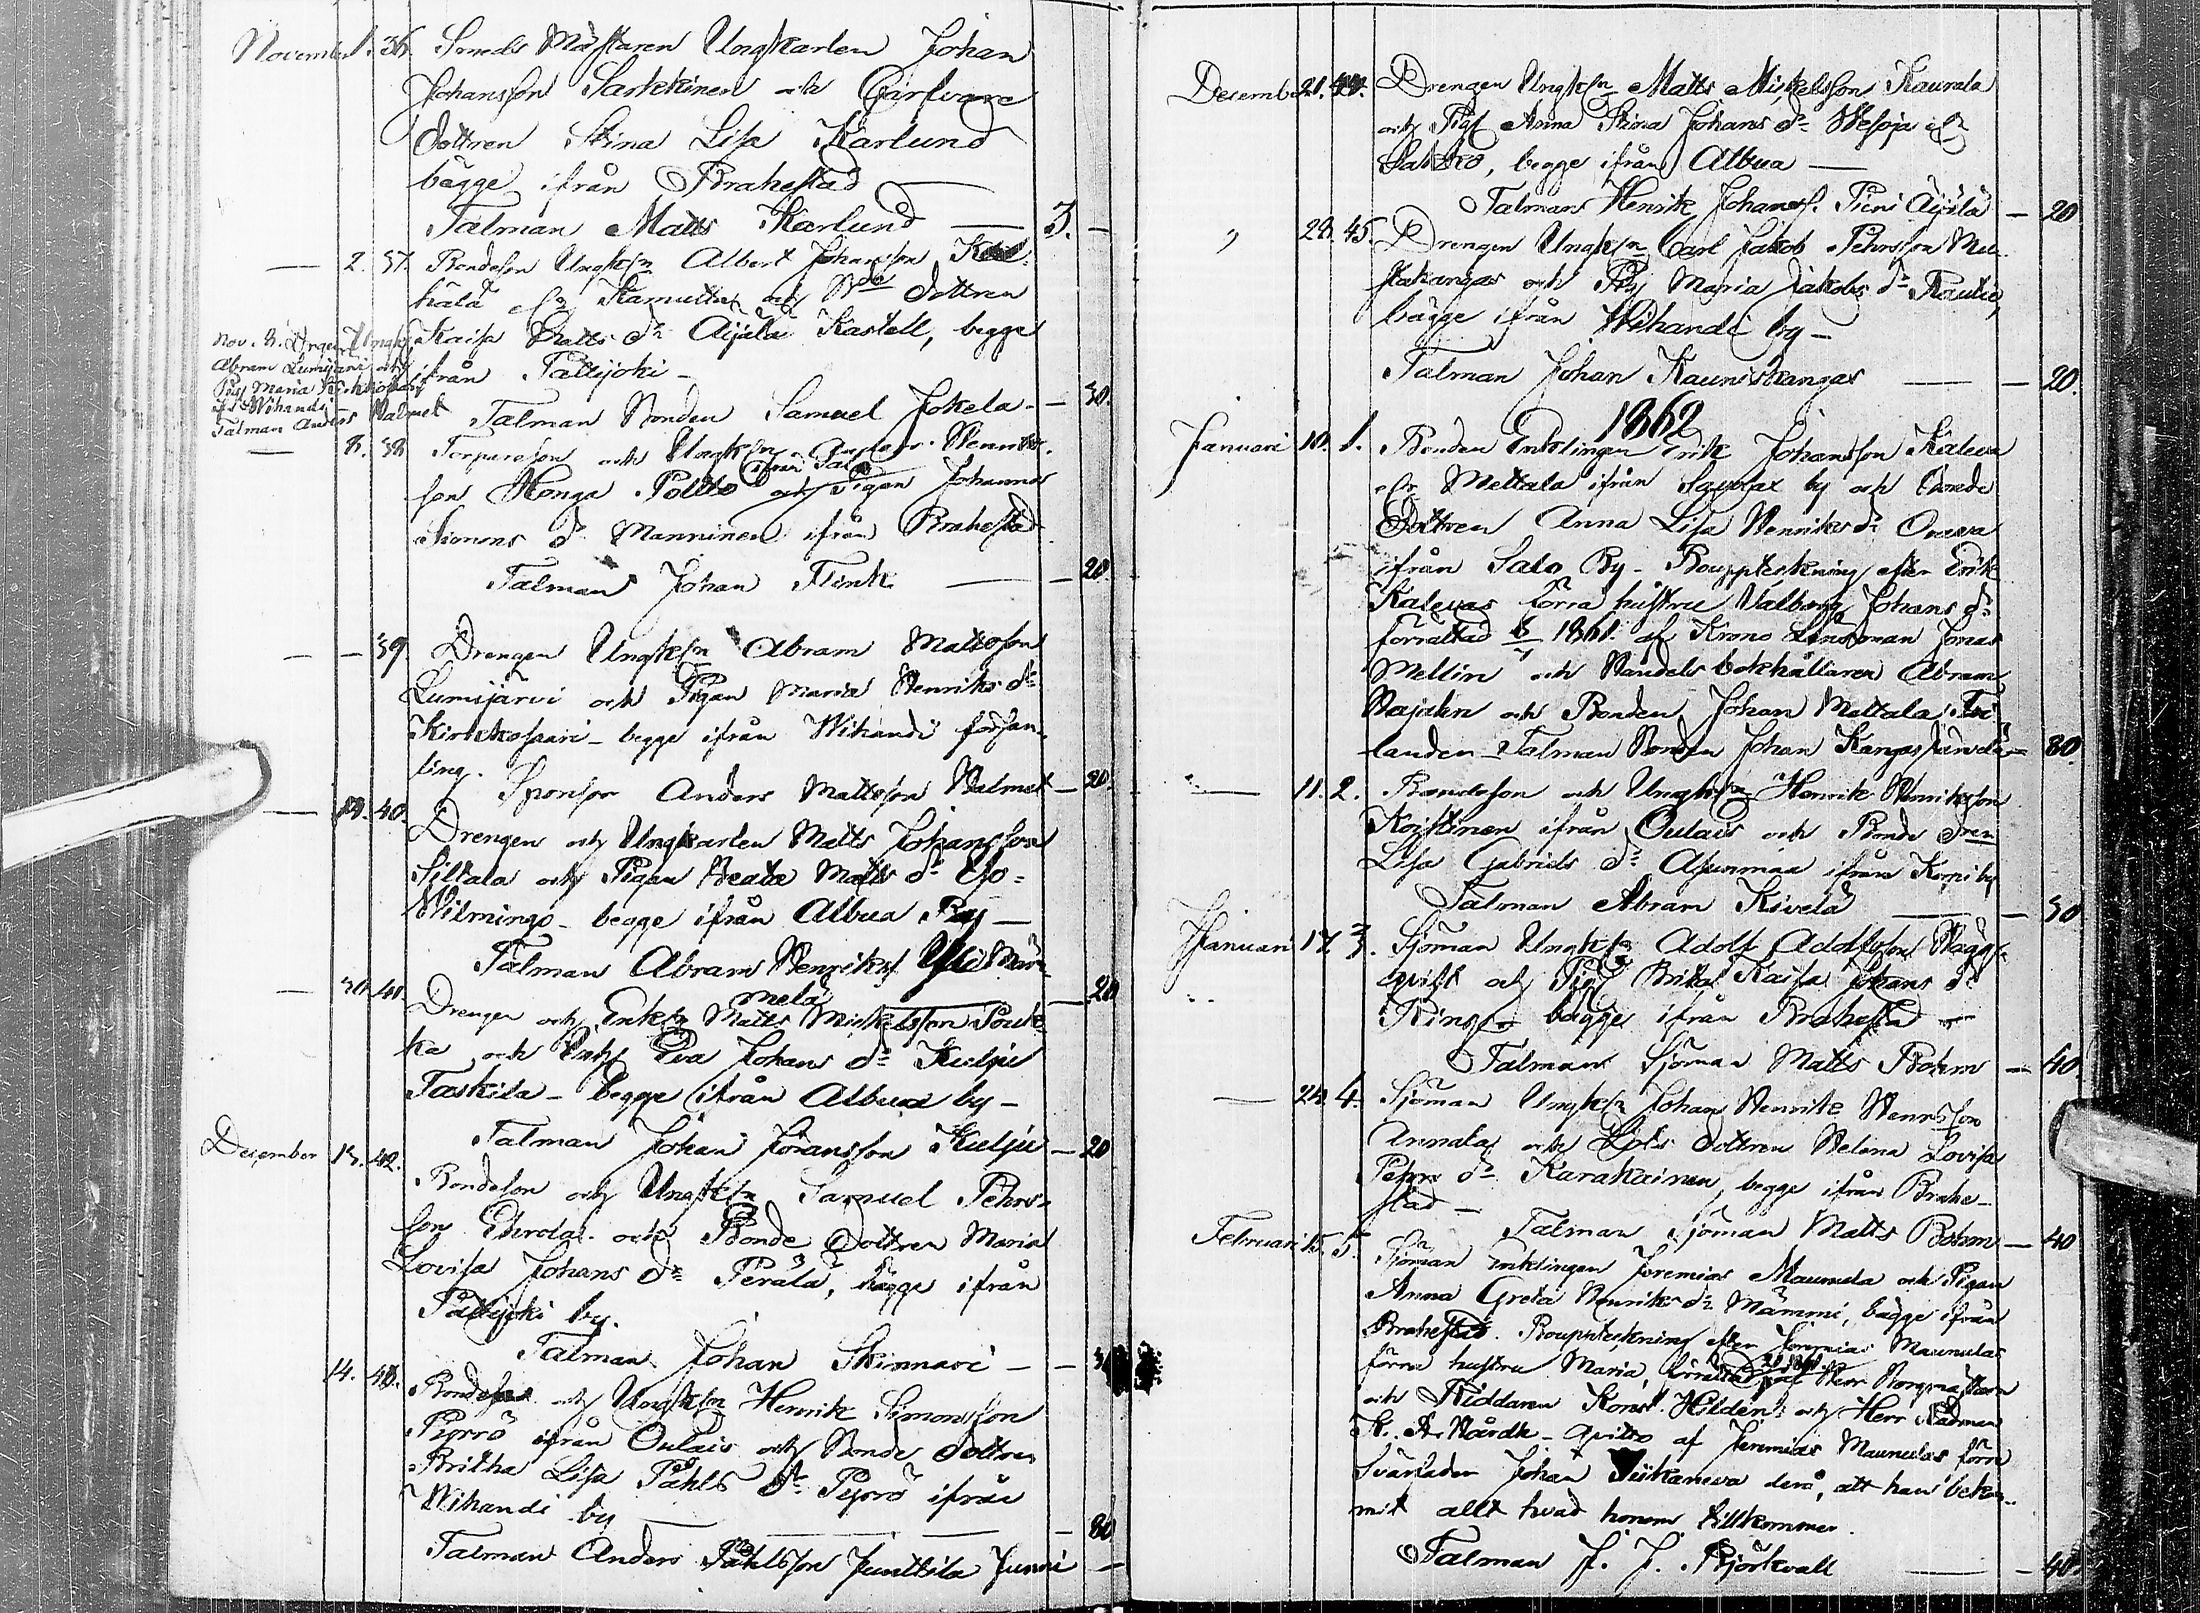 November 1. 36. Smeds Mästaren Ungkarlen Johan
Johansson Sarkkinen och Garfvare
dottren Stina Lisa Karlund
bägge ifrån Brahestad
Talman Matts Karlund — 3. —
— 2. 37. Bondeson Ungk:n Albert Johansson
Kamutta och Bde dottren
Kaisa Matts dr Äijälä Kastell, begge
ifrån Pattijoki —
Talman Bonden Samuel Jokela — 50.
Nov. 8. Drengen Ungk:
Abram Lumijärvi och
Pig Maria Kirkkosaari
ifr Wihandi
Talman Anders Walmet
— 8. 38 Torpareson och Ungk:n Henriks-
son Honga Poltto ifrån Salo och Pigan Johanna
Simons dr Manninen ifrån Brahestad
Talman Johan Flink — 20
— — 39. Drengen Ungk:n Abram Mattsson
Lumijärvi och Pigan Maria Henriks dr
Kirkkosaari — begge ifrån Wihandi försam-
ling. Sponsor Anders Mattsson Walmet — 20.
— 40. Drengen och Ungkarlen Matts Johansson
Siltala och Pigan Beata Matts dr
Wilmings — begge ifrån Albua By —
Talman Abram Henriks: Yli
mela — 20
— 30. 41. Drengen och Enkl:n Matts Mickelsson
ka och Enk: Eva Johans dr Kulju
Taskila — begge ifrån Albua by —
Talman Johan Johansson Kulju — 20
December 13. 42. Bondeson och Ungk:n Samuel Pehrs-
son Eskola och Bonde Dottren Maria
Lovisa Johans dr Perälä, bägge ifrån
Pattijoki by.
Talman Johan Skinnari —
14. 43. Bondeson och Ungk:n Henrik Simonsson
Pyrrö ifrån Oulais och Bonde dottren
Britha Lisa Påhls dr Pyrrö ifrån
Wihandi by — 80
Talman Anders Påhlsson Junttila Junni —
December 21. 44. Drengen Ungk:n Matts Mickelsson Kaurala
och Pig: Anna Stina Johans dr Wesoja
Saukko, begge ifrån Albua —
Talman Henrik Johans: Pieni Äijälä — 20
28. 45. Drengen Ungk:n Carl Jakob Pehrsson
stakangas och Pig Maria Jakobs dr Rautio,
bägge ifrån Wihandi by —
Talman Johan Kauniskangas — 20.
1862
Januari 10. 1. Bonden Enklingen Erik Johansson Kaleva
Mettala ifrån Savolax by och Bonde
Dottren Anna Lisa Henriks dr
ifrån Salo By — Bouppteckning efter Erik
Kalevas förra hustru Valborg Johans dr
förrättad 1861. af Krono Länsman Jonas
Mellin och Handels bokhållaren Abram
och Bonden Johan Mettala
landen — Talman Bonden Johan — 80.
11. 2. Bondeson och Ungk:n Henrik Henriksson
Koistinen ifrån Oulais och Bonde Dren
Lisa Gabriels dr Asunmaa ifrån by
Talman Abram Kivelä — 50
Januari 17 3. Sjöman Ungk:n Adolf Adolfsson Hägg-
qvist och Pig Brita Kaisa Johans dr
Ring bägge ifrån Brahestad —
Talman Sjöman Matts Bohm — 40.
— 24. 4. Sjöman Ungk:n Johan Henrik Henrsson
Annala och Lots dottren Helena Lovisa
Pehrs dr Karakainen, begge ifrån Brahe-
stad —
Talman Sjöman Matts Bohm — 40
Februari 15. 5. Sjöman Enklingen Jeremias Maunula och Pigan
Anna Greta Henriks dr Mämmi, bägge ifrån
Brahestad. Bouppteckning efter Jeremias Maunulas
förra hustru Maria, förrättad af Herr Borgmästaren
och Riddaren Konst. Hildén och Herr Rådman
K. A. Hårdh — qvitto af Jeremias Maunulas förra
Svärfader Johan Siikaneva derå, att han bekom-
mit allt hvad honom tillkommer.
Talman J. J. Björkvall — 40.